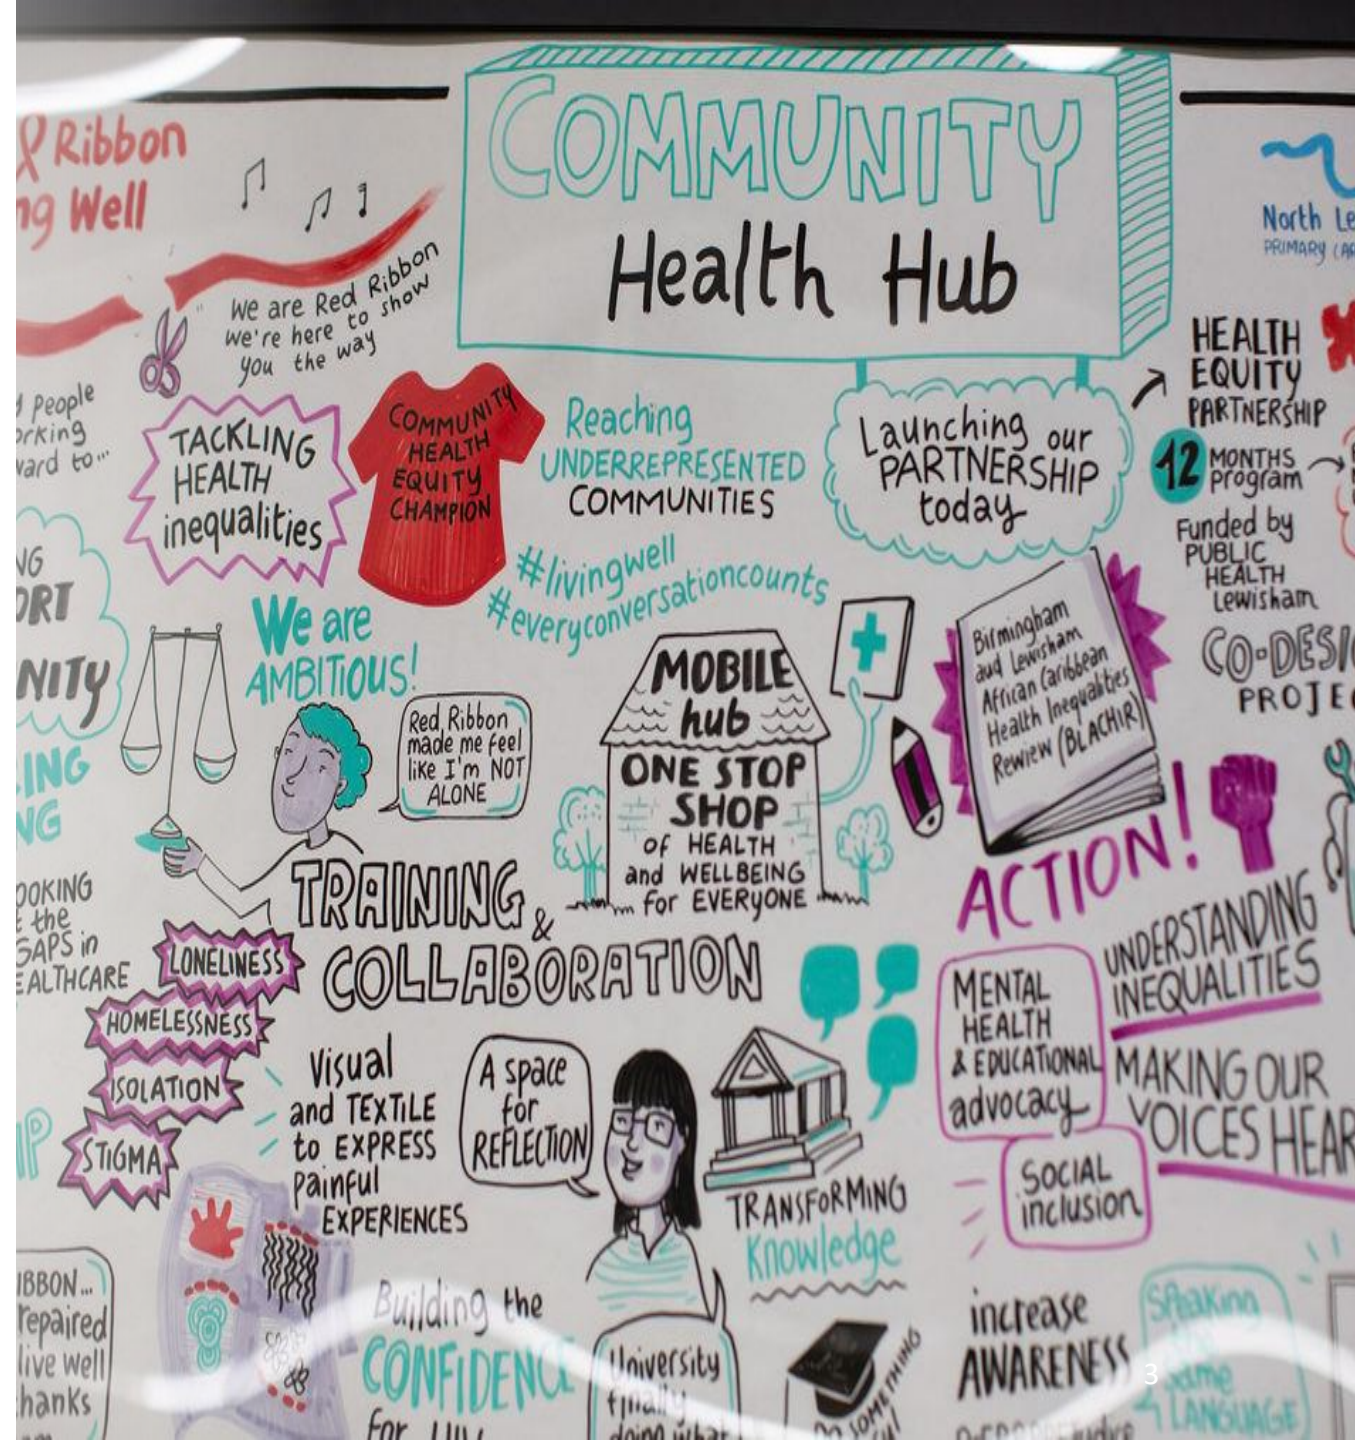 Ribbon
ng Well
We are Red Ribbon
we're here to show
you the way
COMMUNITY
Health Hub
North Le
PRIMARY CAR
people
orking
ward to...
TACKLING
HEALTH
inequalities
COMMUNITY
HEALTH
EQUITY
CHAMPION
Reaching
UNDERREPRESENTED
COMMUNITIES
#livingwell
#everyconversationcounts
Launching our
PARTNERSHIP
today
HEALTH
EQUITY
PARTNERSHIP
12 MONTHS
program
Funded by
PUBLIC
HEALTH
Lewisham
CO-DESI
PROJEC
NG
ORT
NITY
ING
NG
We are
AMBITIOUS!
Red Ribbon
made me feel
like I'm NOT
ALONE
MOBILE
hub
ONE STOP
SHOP
of HEALTH
and WELLBEING
for EVERYONE
Birmingham
and Lewisham
African Caribbean
Health Inequalities
Rewiew (BLACHIR)
ACTION!
OOKING
t the
GAPS in
EALTHCARE
TRAINING &
COLLABORATION
LONELINESS
HOMELESSNESS
ISOLATION
STIGMA
IP
Visual
and TEXTILE
to EXPRESS
painful
EXPERIENCES
A space
for
REFLECTION
TRANSFORMING
Knowledge
MENTAL
HEALTH
& EDUCATIONAL
advocacy
SOCIAL
inclusion
UNDERSTANDING
INEQUALITIES
MAKING OUR
VOICES HEAR
IBBON...
repaired
live well
hanks
Building the
CONFIDENCE
for HIV
University
finally
doing what
DO SOMETHING
increase
AWARENESS
Speaking
same
LANGUAGE
3